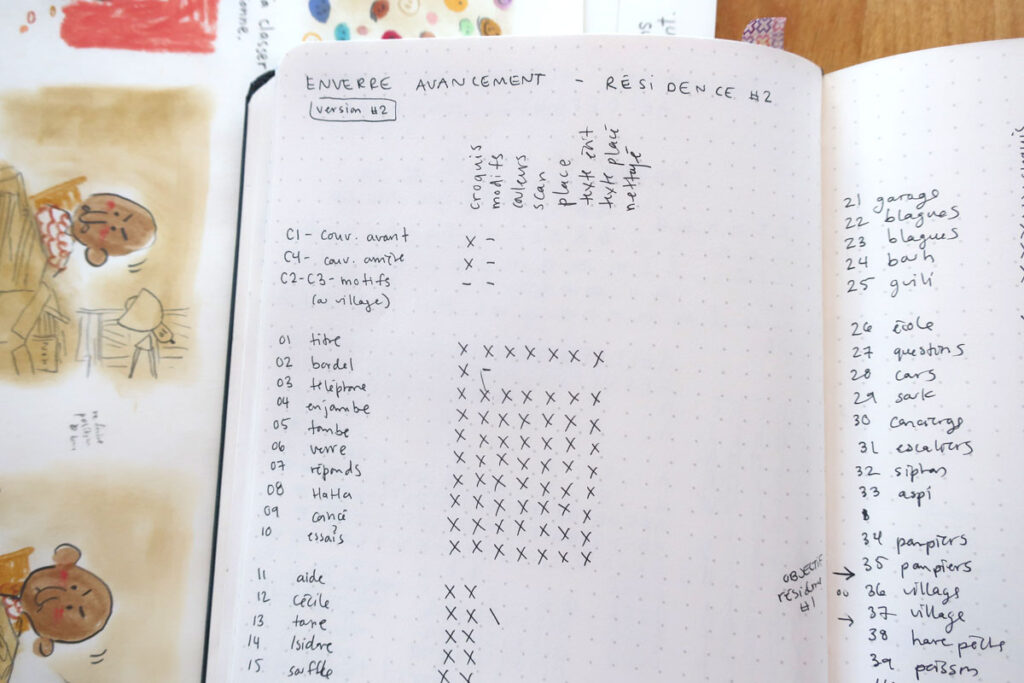 à classer
onne.
nt.
ENVERRE AVANCEMENT - RÉSIDENCE #2
version #2
croquis
modifs
couleurs
scan
place
texte écrit
texte placé
nettoyé
C1 - couv. avant X -
C4 - couv. arrière X -
C2-C3 - motifs - -
(a village)
01 titre X X X X X X X
02 bordel X -
03 téléphone X X X X X X X
04 enjambe X X X X X X X
05 tombe X X X X X X X
06 verre X X X X X X X
07 réponds X X X X X X X
08 HaHa X X X X X X X
09 coincé X X X X X X X
10 essais X X X X X X X
11 aide X X
12 Cécile X X \
13 tape X X
14 Isidore X X
15 souffle X X
21 garage
22 blagues
23 blagues
24 bach
25 guili
26 école
27 questions
28 cars
29 sark
30 concierge
31 escaliers
32 siphon
33 aspi
34 pompiers
OBJECTIF
résidence
#1
→ 35 pompiers
ou 36 village
→ 37 village
38
39 poisson